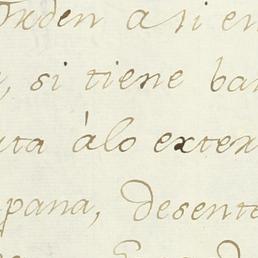 Orden asi en
, si tiene bar
ta àlo exter
pana, desente